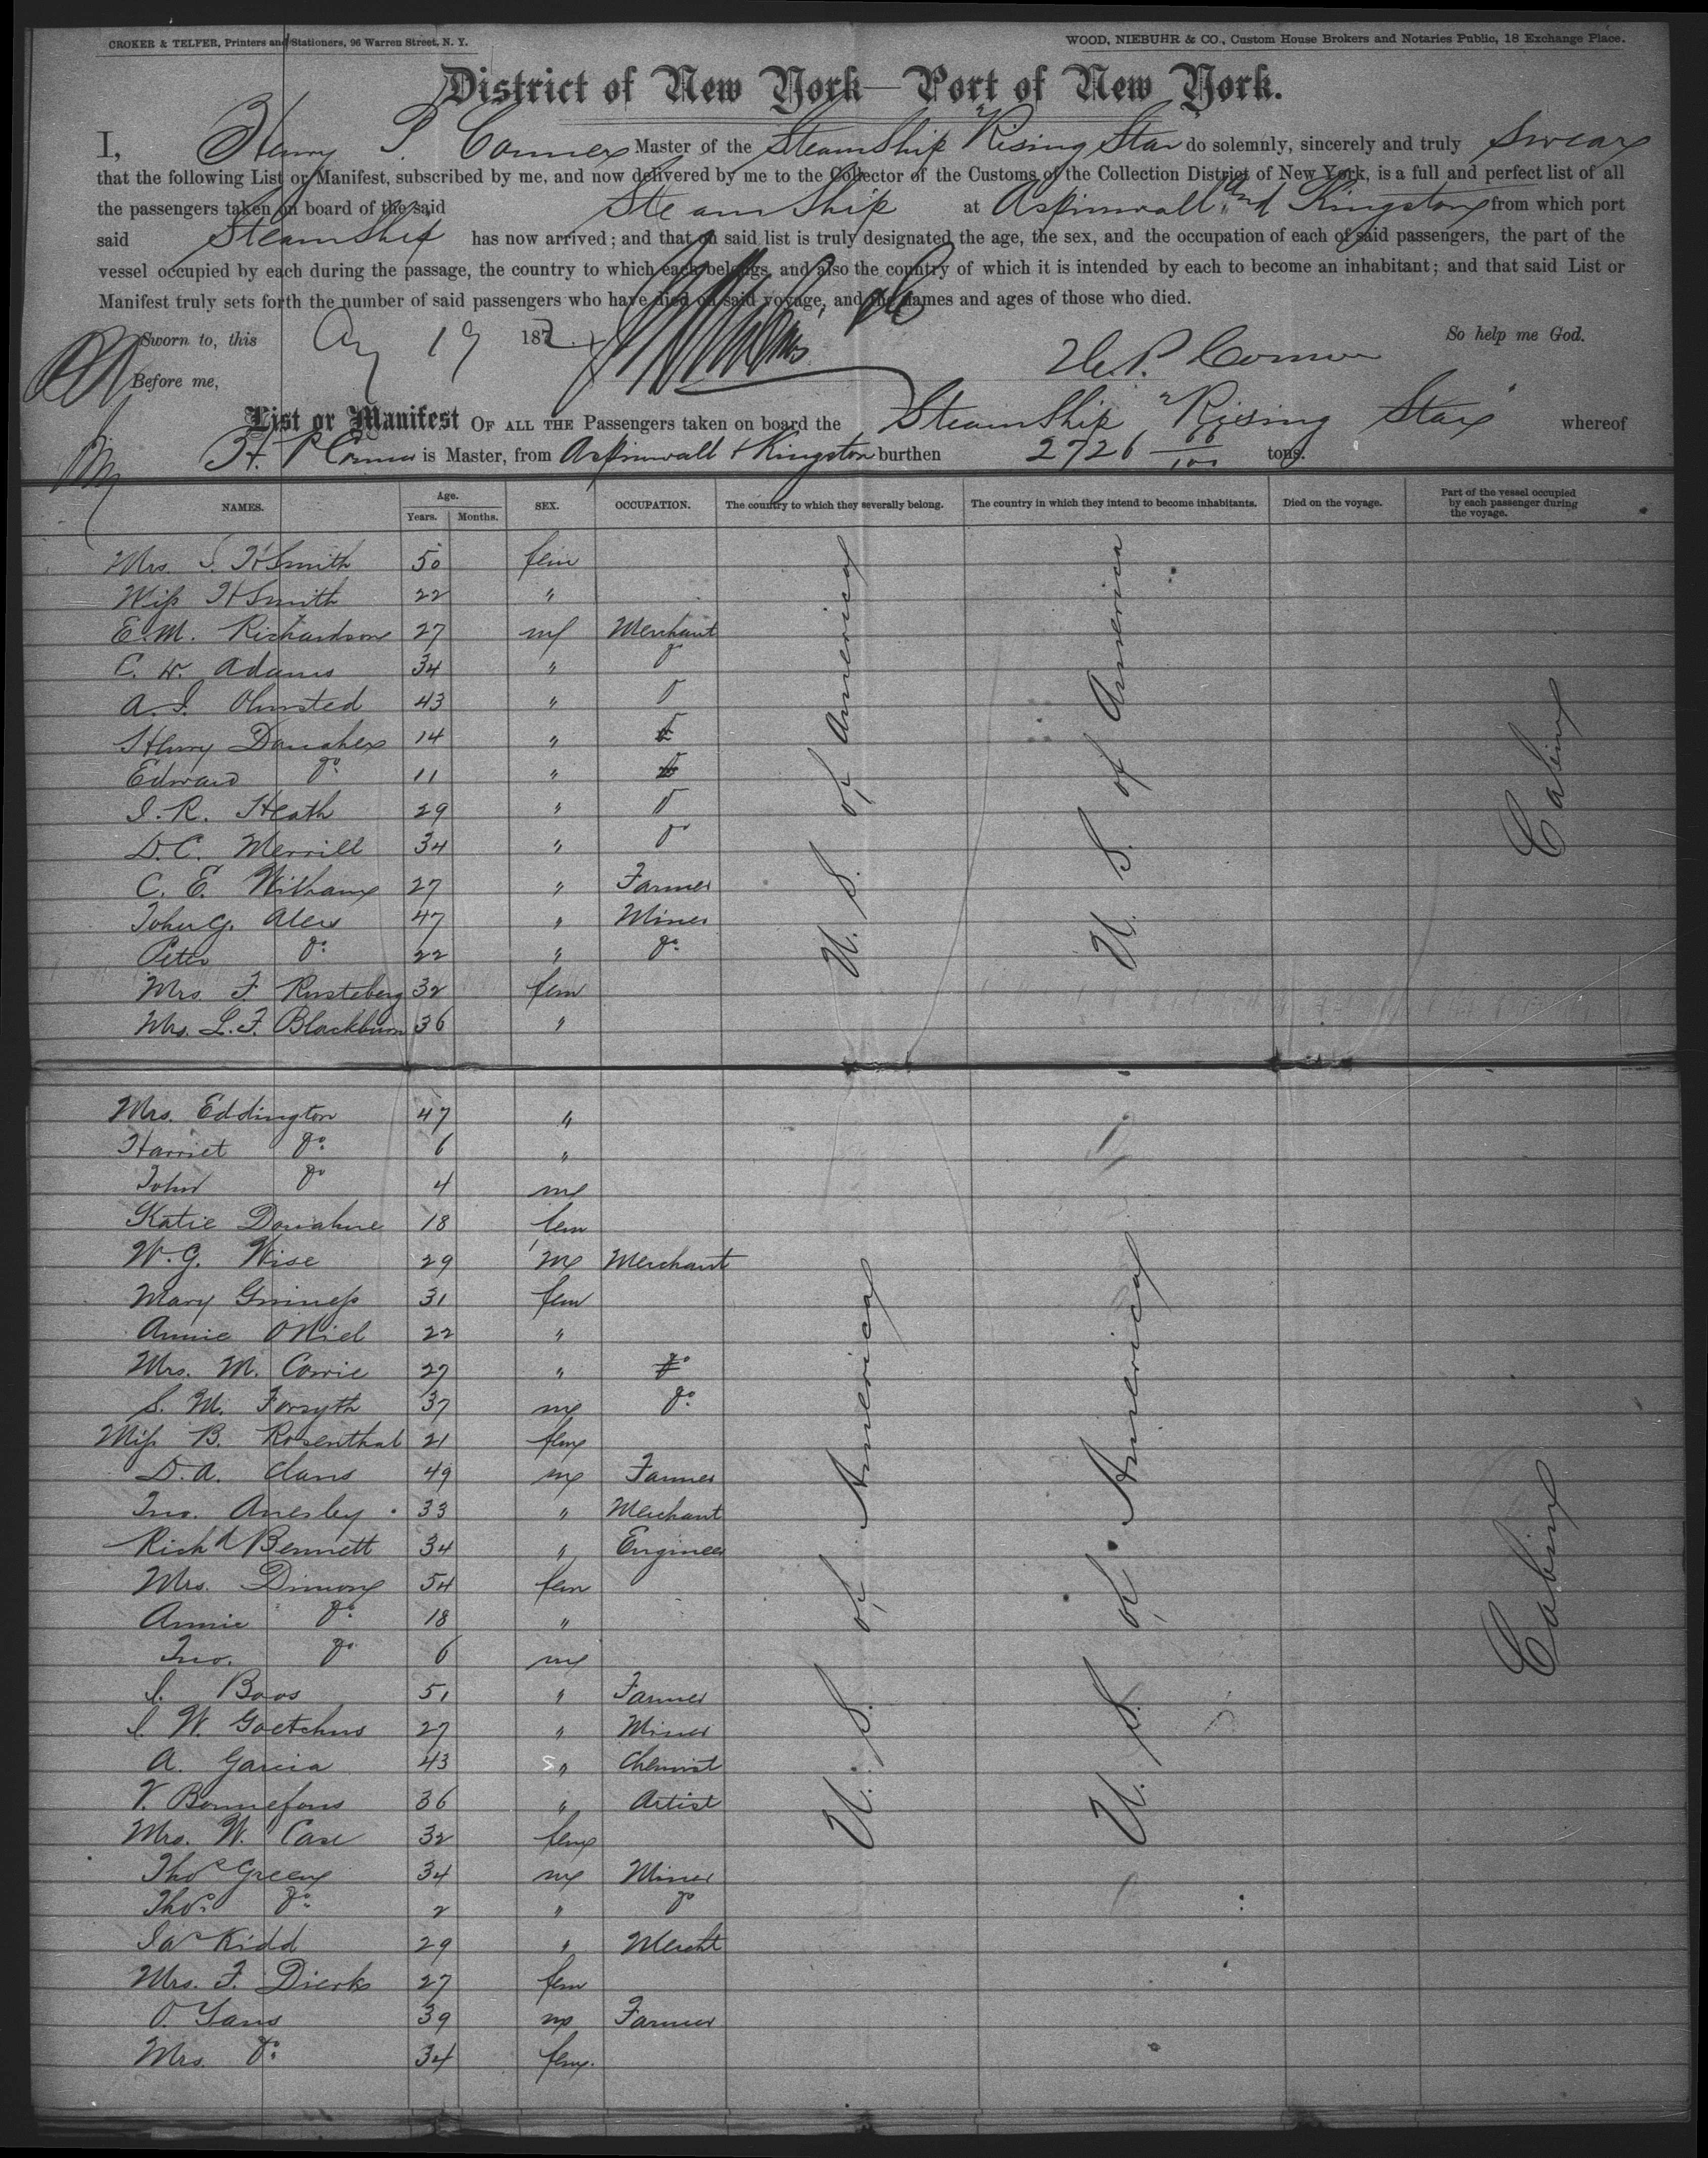 CROKER & TELFER, Printers and Stationers, 96 Warren Street, N. Y. WOOD, NIEBUHR & CO., Custom House Brokers and Notaries Public, 18 Exchange Place.
District of New York—Port of New York.
I, Henry P Conner Master of the Steam Ship "Rising Star do solemnly, sincerely and truly swear
that the following List or Manifest, subscribed by me, and now delivered by me to the Collector of the Customs of the Collection District of New York, is a full and perfect list of all
the passengers taken on board of the said Steam Ship at Aspinwall and Kingston from which port
said Steam Ship has now arrived; and that on said list is truly designated the age, the sex, and the occupation of each of said passengers, the part of the
vessel occupied by each during the passage, the country to which each belongs, and also the country of which it is intended by each to become an inhabitant; and that said List or
Manifest truly sets forth the number of said passengers who have died on said voyage, and the names and ages of those who died.
Sworn to, this Aug 19 1872 So help me God.
Before me, H. P. Conner
List or Manifest OF ALL THE Passengers taken on board the Steam Ship "Rising Star" whereof
H. P Conner is Master, from Aspinwall + Kingston burthen 2726 66/100 tons.
NAMES. Age. Years. Months. SEX. OCCUPATION. The country to which they severally belong. The country in which they intend to become inhabitants. Died on the voyage. Part of the vessel occupied by each passenger during the voyage.
Mrs. S. H Smith 50 fem
Miss H Smith 22 "
E. M. Richardson 27 ml Merchant
C. W. Adams 34 " do
A. I. Olmsted 43 " do
Henry Donahex 14 " do
Edward do 11 " do
I. R. Heath 29 " do
D. C. Merrill 34 " do
C. E. Withams 27 " Farmer
John G. Alers 47 " Miner
Peter do 22 " do
Mrs F. Rusteberg 32 fem
Mrs. L. F. Blackburn 36 "
U. S. of America U. S. of America Cabin
Mrs. Eddington 47 "
Harriet do 6 "
John do 4 ml
Katie Donahue 18 fem
W. G. Wise 29 ml Merchant
Mary Guiness 31 fem
Annie ONiel 22 "
Mrs. M. Corrie 27 " do
S. M. Forsyth 37 ml do
Miss B. Rosenthal 21 fem
D. A. Claus 49 ml Farmer
Jno. Anesley 33 " Merchant
Richd Bennett 34 " Engineer
Mrs. Dimon 54 fem
Annie do 18 "
Jno. do 6 ml
I. Boos 51 " Farmer
I. W. Goetchus 27 " Miner
A. Garcia 43 " Chemist
V. Bonnefous 36 " Artist
Mrs. W. Case 32 fem
Thos Green 34 ml Miner
Thos. do 2 " do
Jas Kidd 29 " Mercht
Mrs. F. Dierks 27 fem
O. Jans 39 ml Farmer
Mrs. do 34 fem.
U. S. of America U. S. of America Cabin